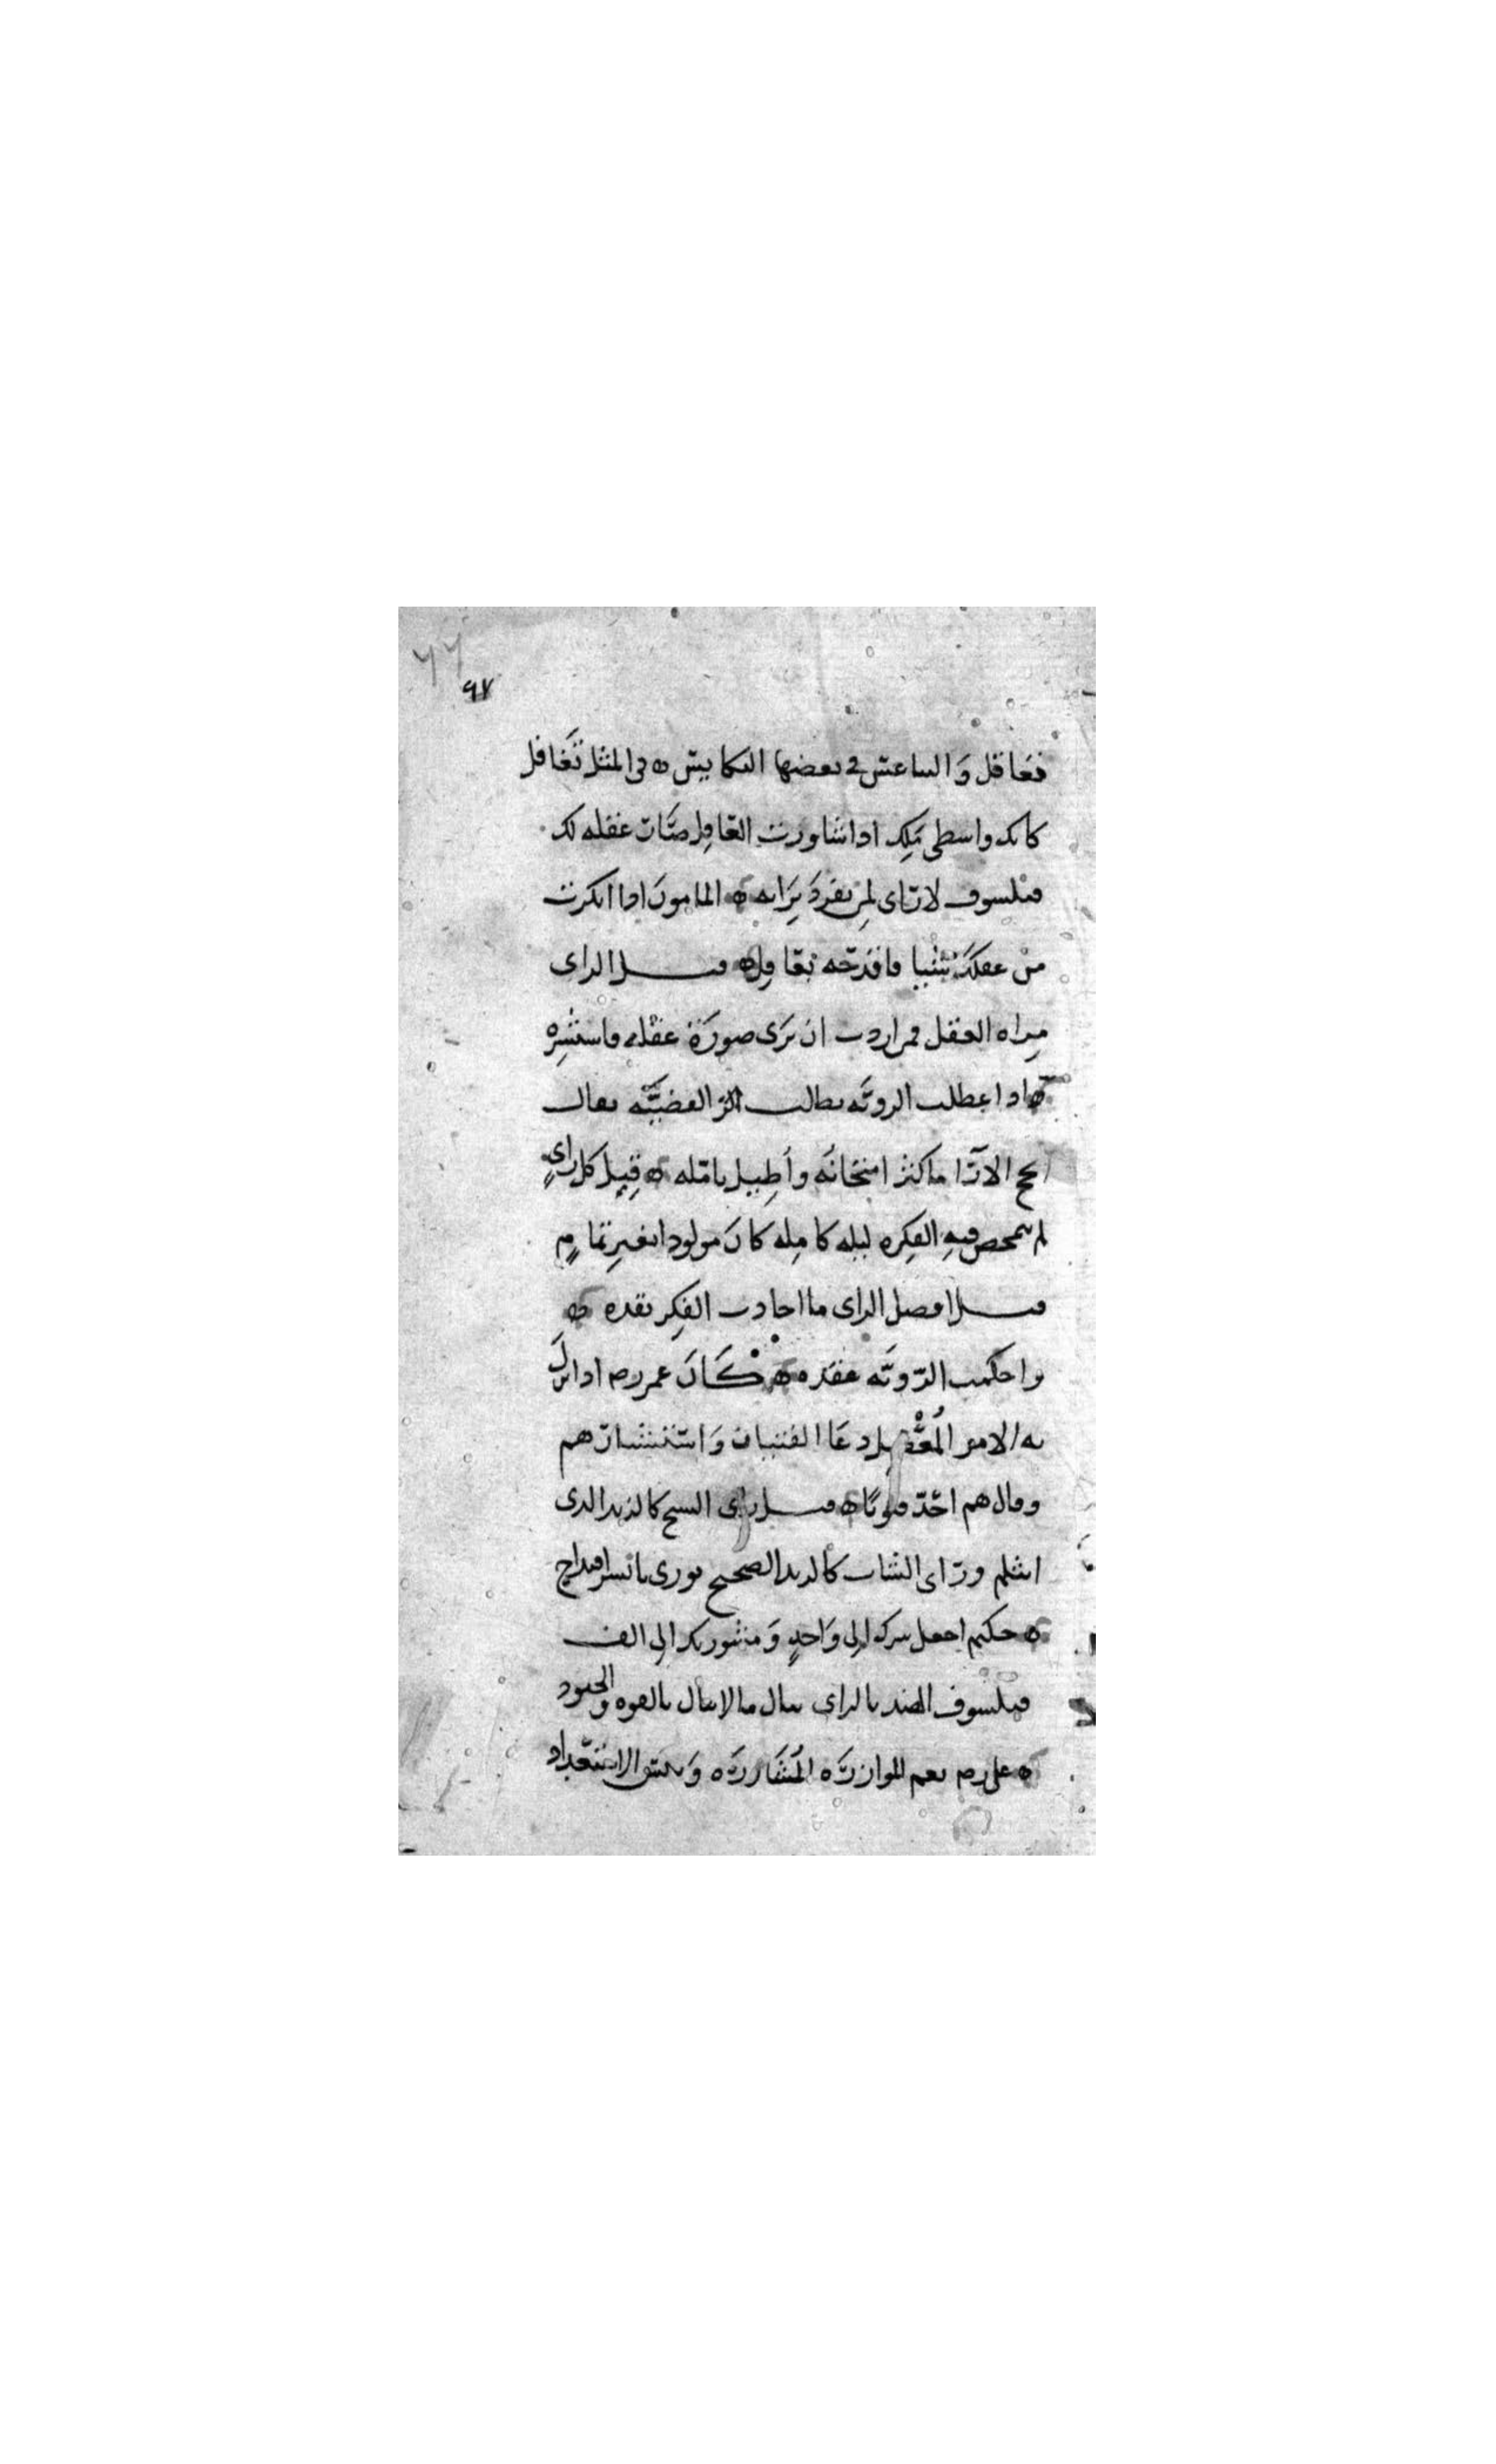 ٩٧
فتغافل والتناعس في بعضها التكايس ه في المثل تغافل
كانك واسطي ملك اذا شاورت العاقل صار عقله لك
فيلسوف لا راي لمن تفرد برايه ه المامون اذا انكرت
من عقلك شيئا فاقدحه بعاقل ه قيل الراي
مراه العقل فمن اردت ان ترى صورة عقله فاستشره
ه اذا
الارآ ما كثر امتحانه واطيل تامله ه قيل كل راي
لم يتمحص فيه الفكره ليله كامله كان مولودا لغير تمام
قيل افضل الراي ما اجادت الفكر نقده ه
واحكمت الرويه عقده ه كان عمر رضه اذا نزل
به الامر المعضل دعا الفتيان واستشارهم
وقال هم احد قلوبا ه قيل راي الشيخ كالزند الذي
انثلم وراي الشاب كالزند الصحيح يوري بايسر اقتداح
ه حكيم اجعل سرك الى واحد ومشورتك الى الف
فيلسوف بالراي ينال ما لا ينال بالقوه والجنود
ه علي رضه نعم الموازره المشاوره وبئس الاستعداد